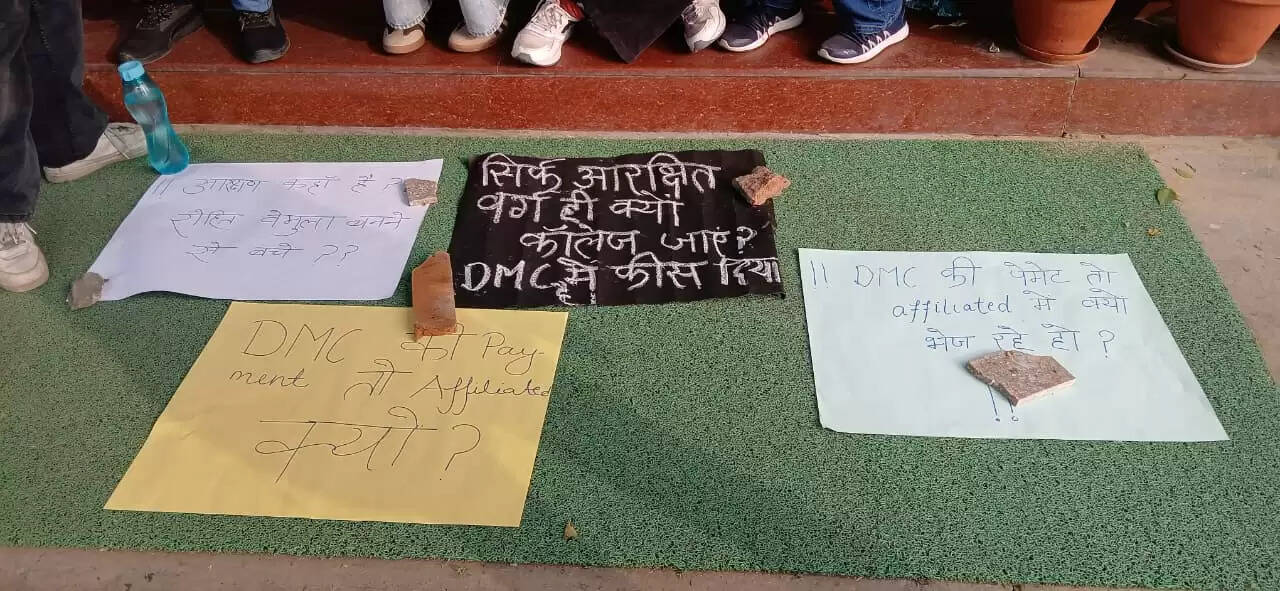 !! आरक्षण कहाँ है ?
रोहित वेमुला बनने
से बचे ??
सिर्फ आरक्षित
वर्ग ही क्यो
कॉलेज जाए?
DMC मे फीस दिया
है!
DMC की Pay-
ment तो Affiliated
क्यो ?
!! DMC की पेमेट तो
affiliated मे क्यो
भेज रहे हो ?
!!